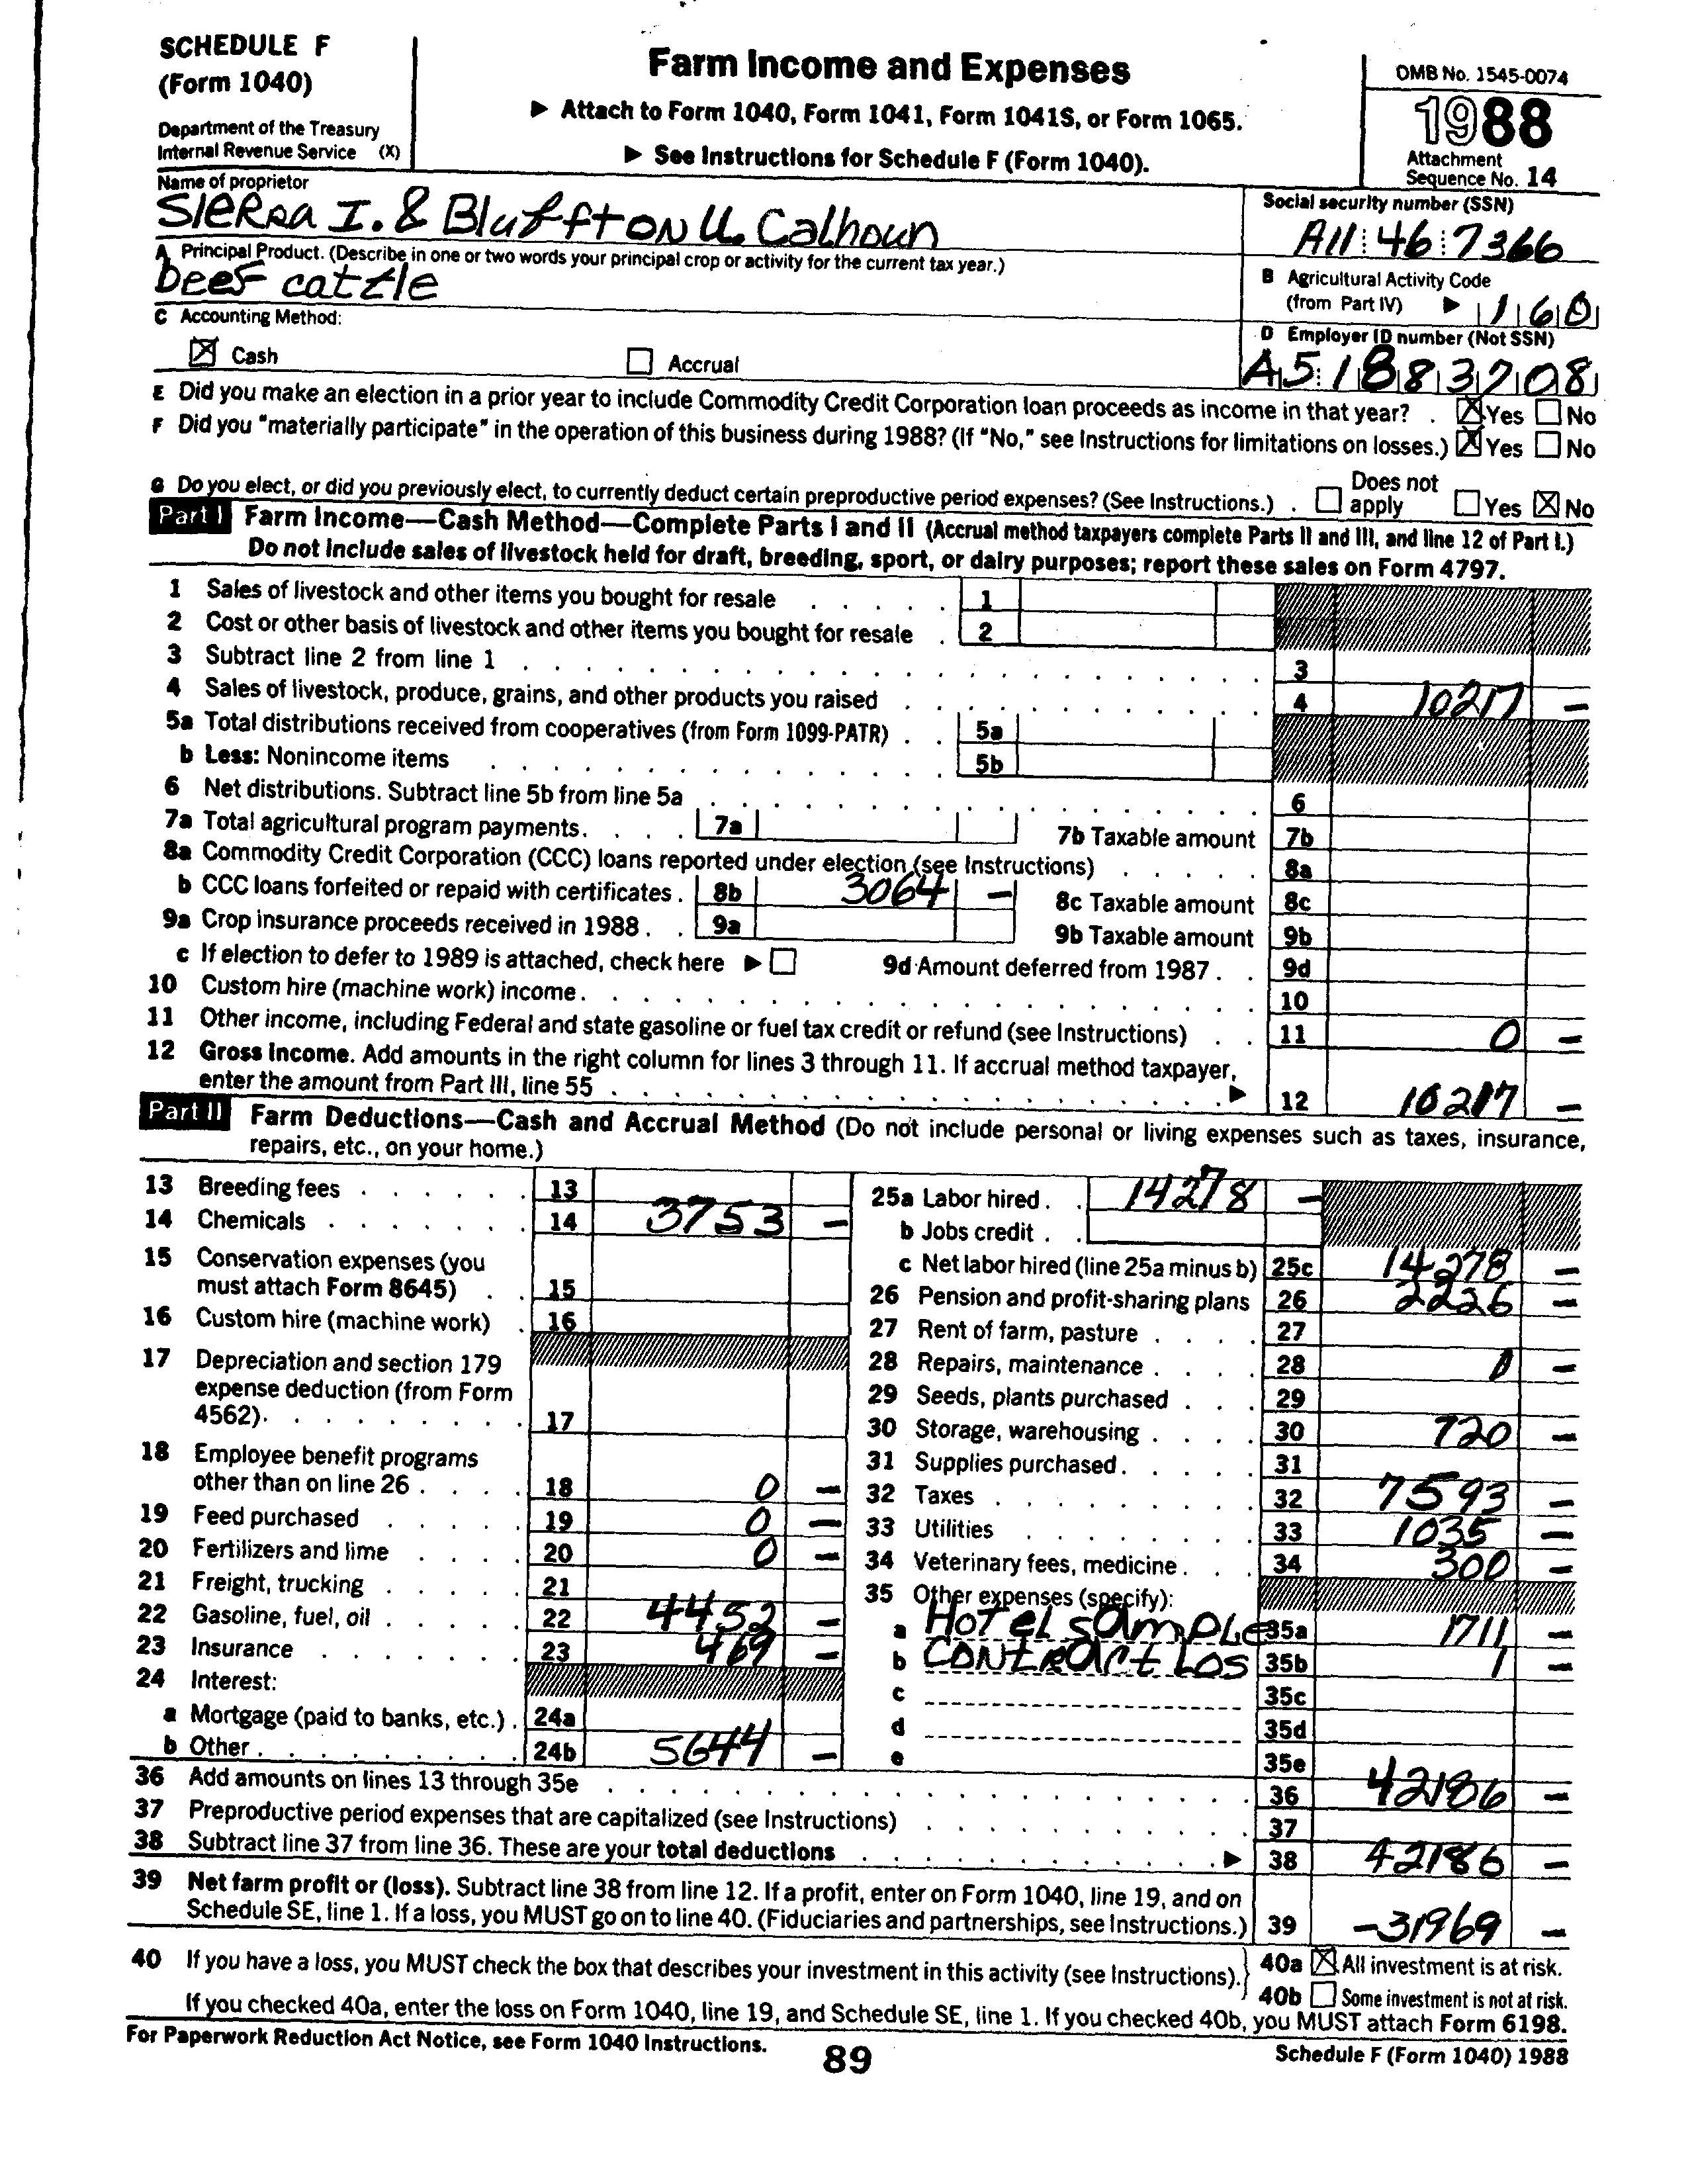 SCHEDULE F
(Form 1040)
Department of the Treasury
Internal Revenue Service (X)
Farm Income and Expenses
▶ Attach to Form 1040, Form 1041, Form 1041S, or Form 1065.
▶ See Instructions for Schedule F (Form 1040).
OMB No. 1545-0074
1988
Attachment
Sequence No. 14
Name of proprietor
Sierra I. & Bluffton U. Calhoun
Social security number (SSN)
A11 46 7366
A Principal Product. (Describe in one or two words your principal crop or activity for the current tax year.)
beef cattle
B Agricultural Activity Code
(from Part IV) ▶ 160
C Accounting Method:
☒ Cash ☐ Accrual
D Employer ID number (Not SSN)
A518883208
E Did you make an election in a prior year to include Commodity Credit Corporation loan proceeds as income in that year? . ☒ Yes ☐ No
F Did you "materially participate" in the operation of this business during 1988? (If "No," see Instructions for limitations on losses.) ☒ Yes ☐ No
G Do you elect, or did you previously elect, to currently deduct certain preproductive period expenses? (See Instructions.) . ☐ Does not apply ☐ Yes ☒ No
Part I Farm Income—Cash Method—Complete Parts I and II (Accrual method taxpayers complete Parts II and III, and line 12 of Part I.)
Do not include sales of livestock held for draft, breeding, sport, or dairy purposes; report these sales on Form 4797.
1 Sales of livestock and other items you bought for resale 1
2 Cost or other basis of livestock and other items you bought for resale 2
3 Subtract line 2 from line 1 3
4 Sales of livestock, produce, grains, and other products you raised 4 10217 —
5a Total distributions received from cooperatives (from Form 1099-PATR) 5a
b Less: Nonincome items 5b
6 Net distributions. Subtract line 5b from line 5a 6
7a Total agricultural program payments. 7a 7b Taxable amount 7b
8a Commodity Credit Corporation (CCC) loans reported under election (see Instructions) 8a
b CCC loans forfeited or repaid with certificates . 8b 3064 — 8c Taxable amount 8c
9a Crop insurance proceeds received in 1988 . 9a 9b Taxable amount 9b
c If election to defer to 1989 is attached, check here ▶ ☐ 9d Amount deferred from 1987 . 9d
10 Custom hire (machine work) income . 10
11 Other income, including Federal and state gasoline or fuel tax credit or refund (see Instructions) 11 0 —
12 Gross Income. Add amounts in the right column for lines 3 through 11. If accrual method taxpayer,
enter the amount from Part III, line 55 ▶ 12 10217 —
Part II Farm Deductions—Cash and Accrual Method (Do not include personal or living expenses such as taxes, insurance,
repairs, etc., on your home.)
13 Breeding fees 13
14 Chemicals 14 3753 —
15 Conservation expenses (you
must attach Form 8645) 15
16 Custom hire (machine work) 16
17 Depreciation and section 179
expense deduction (from Form
4562). 17
18 Employee benefit programs
other than on line 26 18 0 —
19 Feed purchased 19 0 —
20 Fertilizers and lime 20 0 —
21 Freight, trucking 21
22 Gasoline, fuel, oil 22 4452 —
23 Insurance 23 469 —
24 Interest:
a Mortgage (paid to banks, etc.) . 24a
b Other 24b 5644 —
25a Labor hired . 14278 —
b Jobs credit .
c Net labor hired (line 25a minus b) 25c 14278 —
26 Pension and profit-sharing plans 26 2226 —
27 Rent of farm, pasture 27
28 Repairs, maintenance 28 0 —
29 Seeds, plants purchased 29
30 Storage, warehousing 30 720 —
31 Supplies purchased . 31
32 Taxes 32 7593 —
33 Utilities 33 1035 —
34 Veterinary fees, medicine . 34 300 —
35 Other expenses (specify):
a Hotel sample 35a 1711 —
b Contract Los 35b 1 —
c 35c
d 35d
e 35e
36 Add amounts on lines 13 through 35e 36 42186 —
37 Preproductive period expenses that are capitalized (see Instructions) 37
38 Subtract line 37 from line 36. These are your total deductions ▶ 38 42186 —
39 Net farm profit or (loss). Subtract line 38 from line 12. If a profit, enter on Form 1040, line 19, and on
Schedule SE, line 1. If a loss, you MUST go on to line 40. (Fiduciaries and partnerships, see Instructions.) 39 -31969 —
40 If you have a loss, you MUST check the box that describes your investment in this activity (see Instructions).
40a ☒ All investment is at risk.
40b ☐ Some investment is not at risk.
If you checked 40a, enter the loss on Form 1040, line 19, and Schedule SE, line 1. If you checked 40b, you MUST attach Form 6198.
For Paperwork Reduction Act Notice, see Form 1040 Instructions.
89
Schedule F (Form 1040) 1988